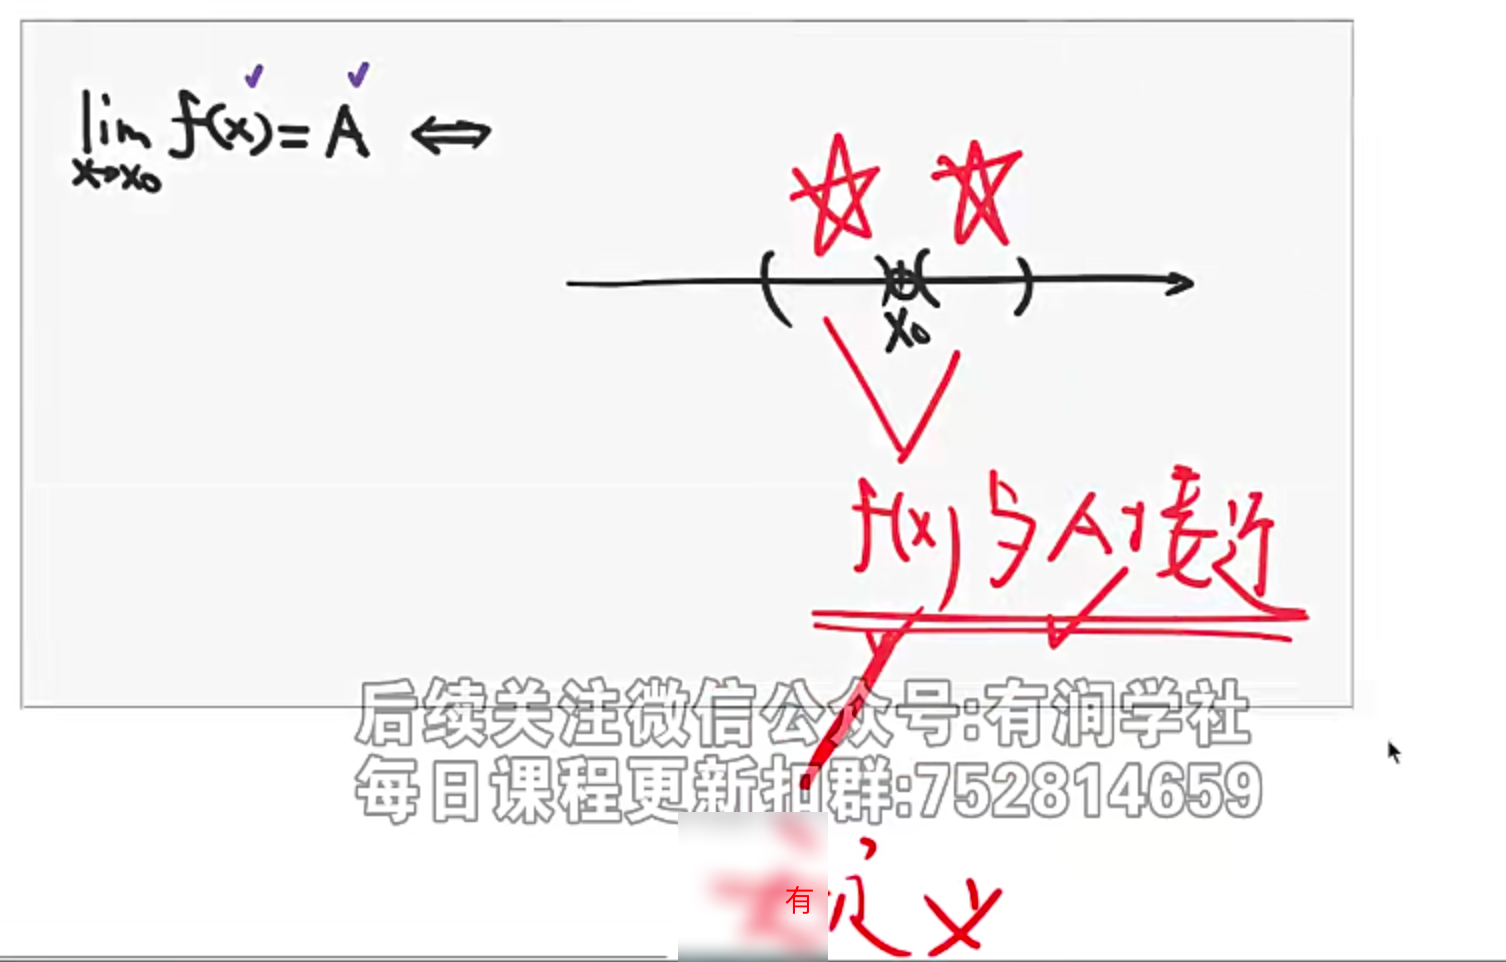 lim f(x) = A ⇔
x→x₀
x₀
f(x)与A接近
后续关注微信公众号:有润学社
每日课程更新扣群:752814659
有定义